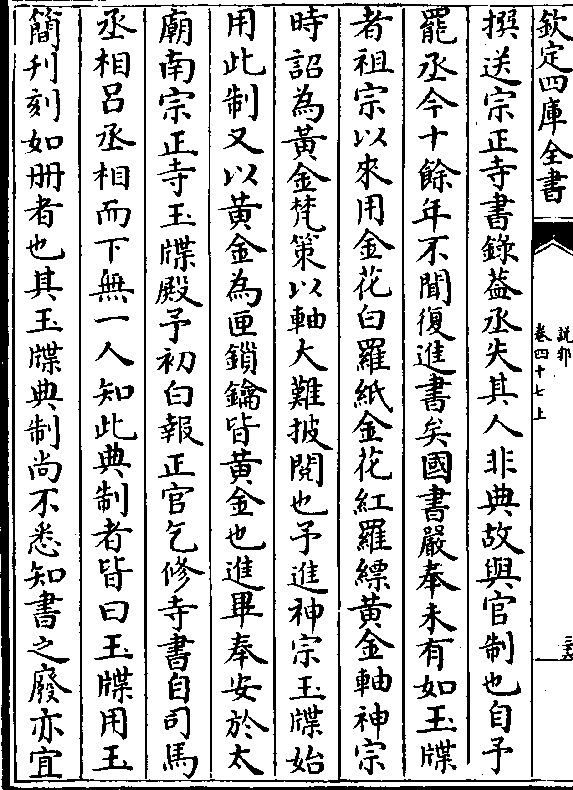 欽定四庫全書
說郛
卷四十七上
三十六
撰送宗正寺書錄葢丞失其人非典故與官制也自予
罷丞今十餘年不聞復進書矣國書嚴奉未有如玉牒
者祖宗以來用金花白羅紙金花紅羅縹黃金軸神宗
時詔為黃金梵策以軸大難披閱也予進神宗玉牒始
用此制又以黃金為匣鎖鑰皆黃金也進畢奉安於太
廟南宗正寺玉牒殿予初白報正官乞修寺書自司馬
丞相呂丞相而下無一人知此典制者皆曰玉牒用玉
簡刋刻如册者也其玉牒典制尚不悉知書之廢亦宜